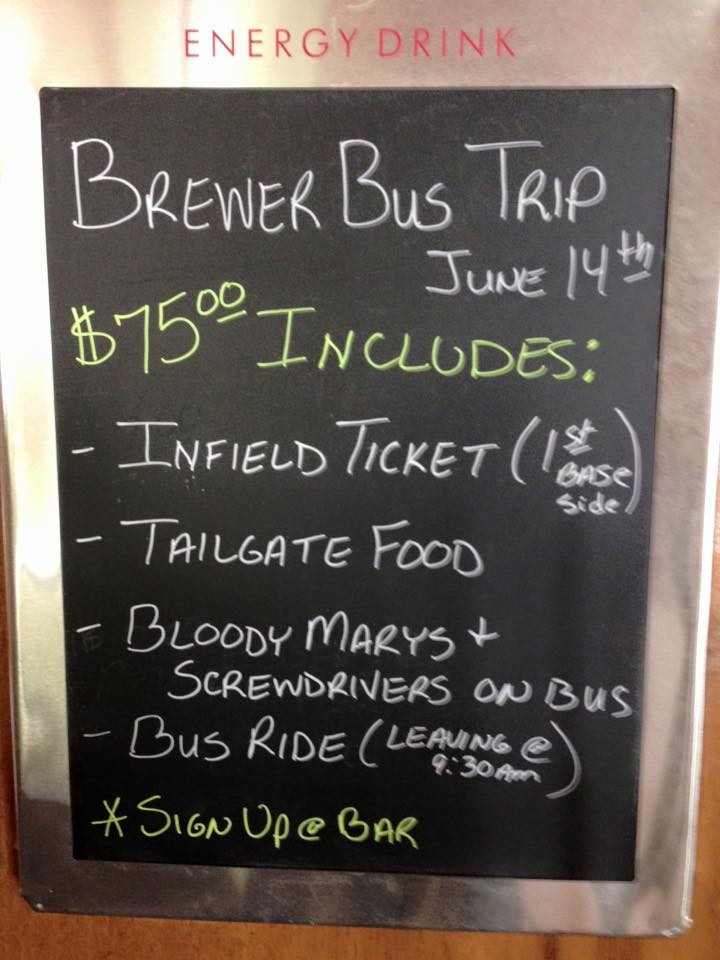 ENERGY DRINK
BREWER BUS TRIP
JUNE 14th
$75.00 INCLUDES:
- INFIELD TICKET (1st BASE Side)
- TAILGATE FOOD
- BLOODY MARYS +
SCREWDRIVERS ON BUS
- BUS RIDE (LEAVING @ 9:30AM)
* SIGN UP @ BAR